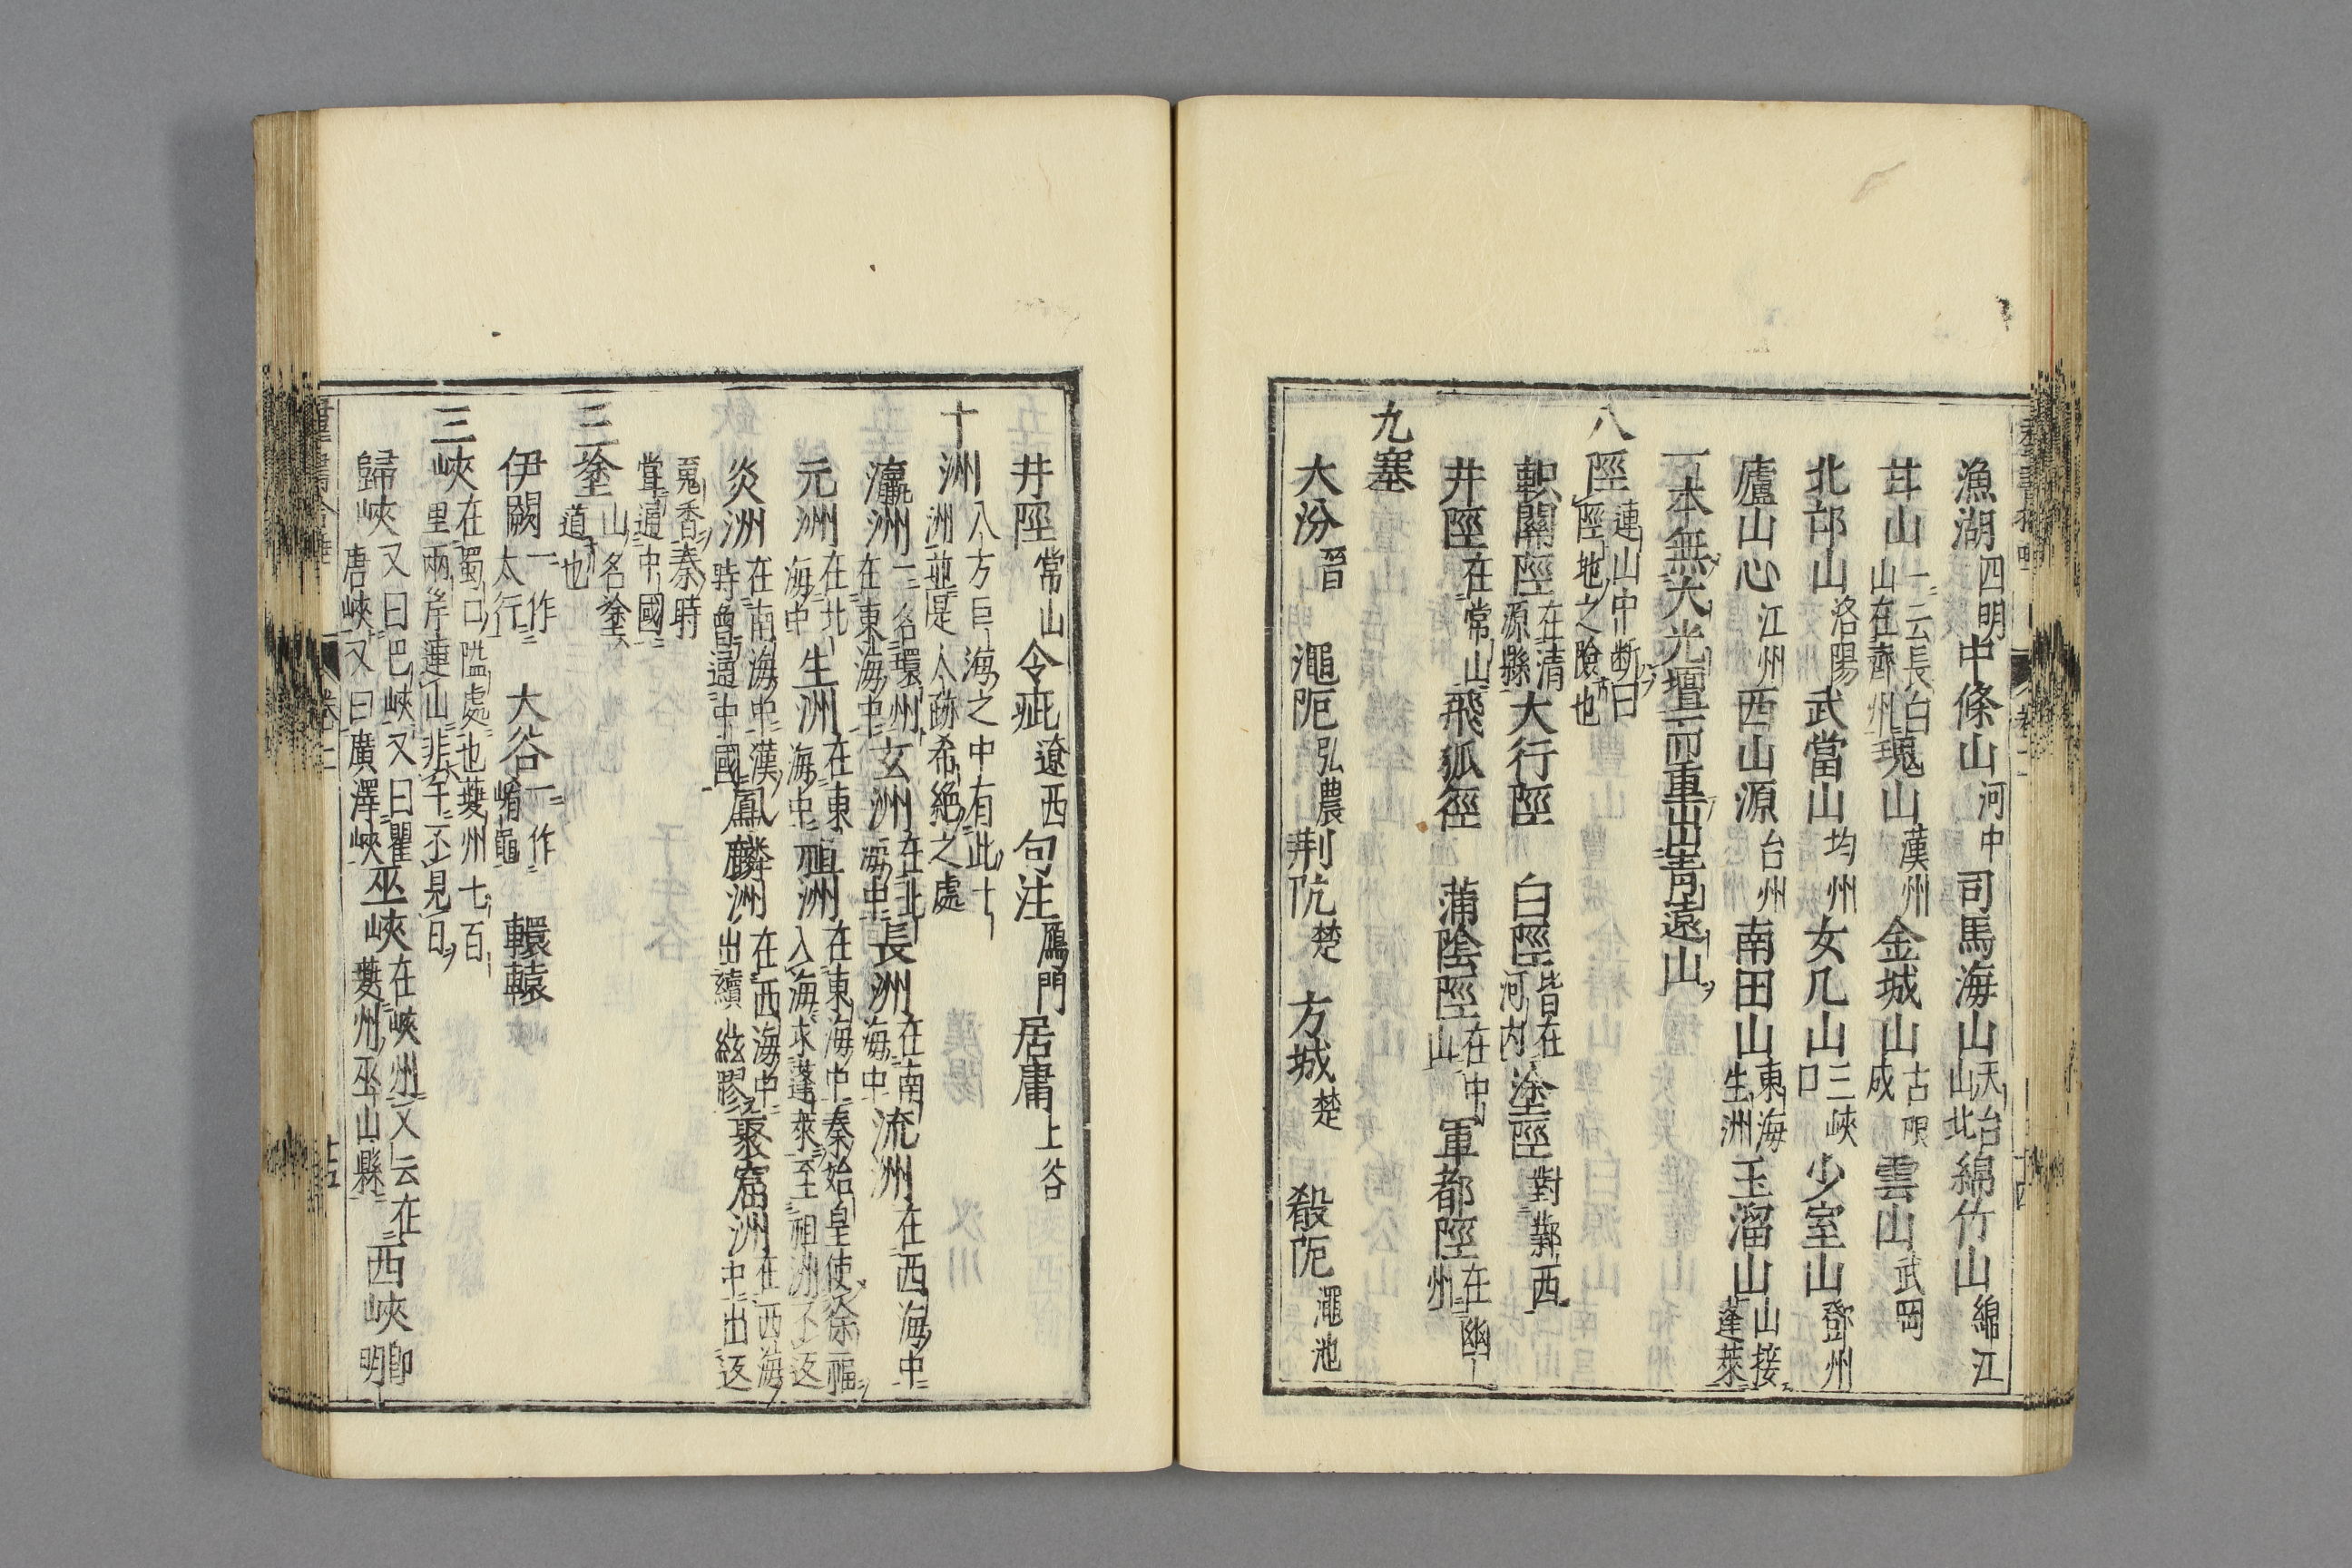 漁湖四明中條山河中司馬海山天台山北綿竹山綿江
茸山一云長白山在齊州瑰山漢州金城山古限成雲山武岡
北邙山洛陽武當山均州女几山三峽口少室山鄧州
廬山心江州西山源台州南田山東海生洲玉溜山山接蓬萊
一本無大光壇而重出青遠山
八陘連山中断曰陘地之險也
軹關陘在清源縣大行陘白陘皆在河内塗陘對鄴西
井陘在常山飛狐徑蒲陰陘在中山軍都陘在幽州
九塞
大汾晉澠阨弘農荆阬楚方城楚殽阨澠池
井陘常山令疵遼西句注鴈門居庸上谷
十洲八方巨海之中有此十洲並是人跡希絶之處
瀛洲一名環州在東海中玄洲在北海中長洲在南海中流洲在西海中
元洲在北海中生洲在東海中祖洲在東海中秦始皇使徐福入海求蓬萊至祖洲不返
炎洲在南海中漢時曾通中國鳳麟洲在西海中出續絃膠聚窟洲在西海中出返
䰟香秦時嘗通中國
三塗山名塗道也
伊闕一作太行大谷一作崤黽轘轅
三峽在蜀口隘處也夔州七百里兩岸連山非午不見日
歸峽又曰巴峽又曰瞿唐峽又曰廣澤峽巫峽在峽州又云在夔州巫山縣西峽即明